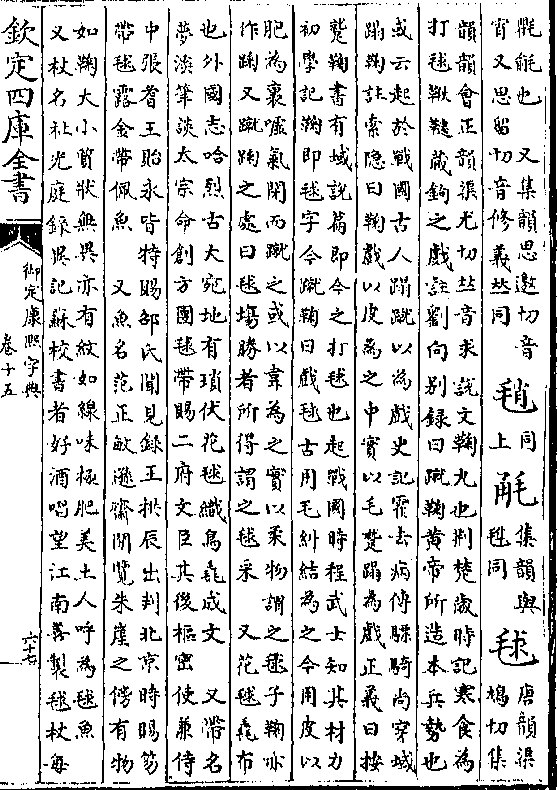 毹也　又集韻思邀切音
宵又思留切音修義𠀤同
同上
集韻與毬同
毬 唐韻渠鳩切集
韻韻會正韻渠尤切𠀤音求　說文鞠丸也荆楚歲時記寒食為
打毬鞦韆藏鉤之戲註劉向别録曰蹴鞠黄帝所造本兵勢也
或云起於戰國古人蹋蹴以為戲史記霍去病傳驃騎尚穿域
蹋鞠註索隱曰鞠戲以皮為之中實以毛蹵蹋為戲正義曰按
蹵鞠書有域說篇即今之打毬也起戰國時程武士知其材力
初學記鞠即毬字今蹴鞠曰戲毬古用毛糾結為之今用皮以
肥為裏嘘氣閉而蹴之或以韋為之實以柔物謂之毬子鞠亦
作踘又蹴踘之處曰毬塲勝者所得謂之毬采　又花毬毳布
也外國志哈烈古大宛地有瑣伏花毬織鳥毳成文　又帶名
夢溪筆談太宗命創方團毬帶賜二府文臣其後樞密使兼侍
中張耆王貽永皆特賜邵氏聞見録王拱辰出判北京時賜笏
帶毬露金帶佩魚　又魚名范正敏遯齋閒覽朱崖之傍有物
如鞠大小質狀無異亦有紋如線味極肥美土人呼為毬魚
又杖名杜光庭録異記蘇校書者好酒唱望江南善製毬杖每
欽定四庫全書
御定康熙字典
卷十五
六十七